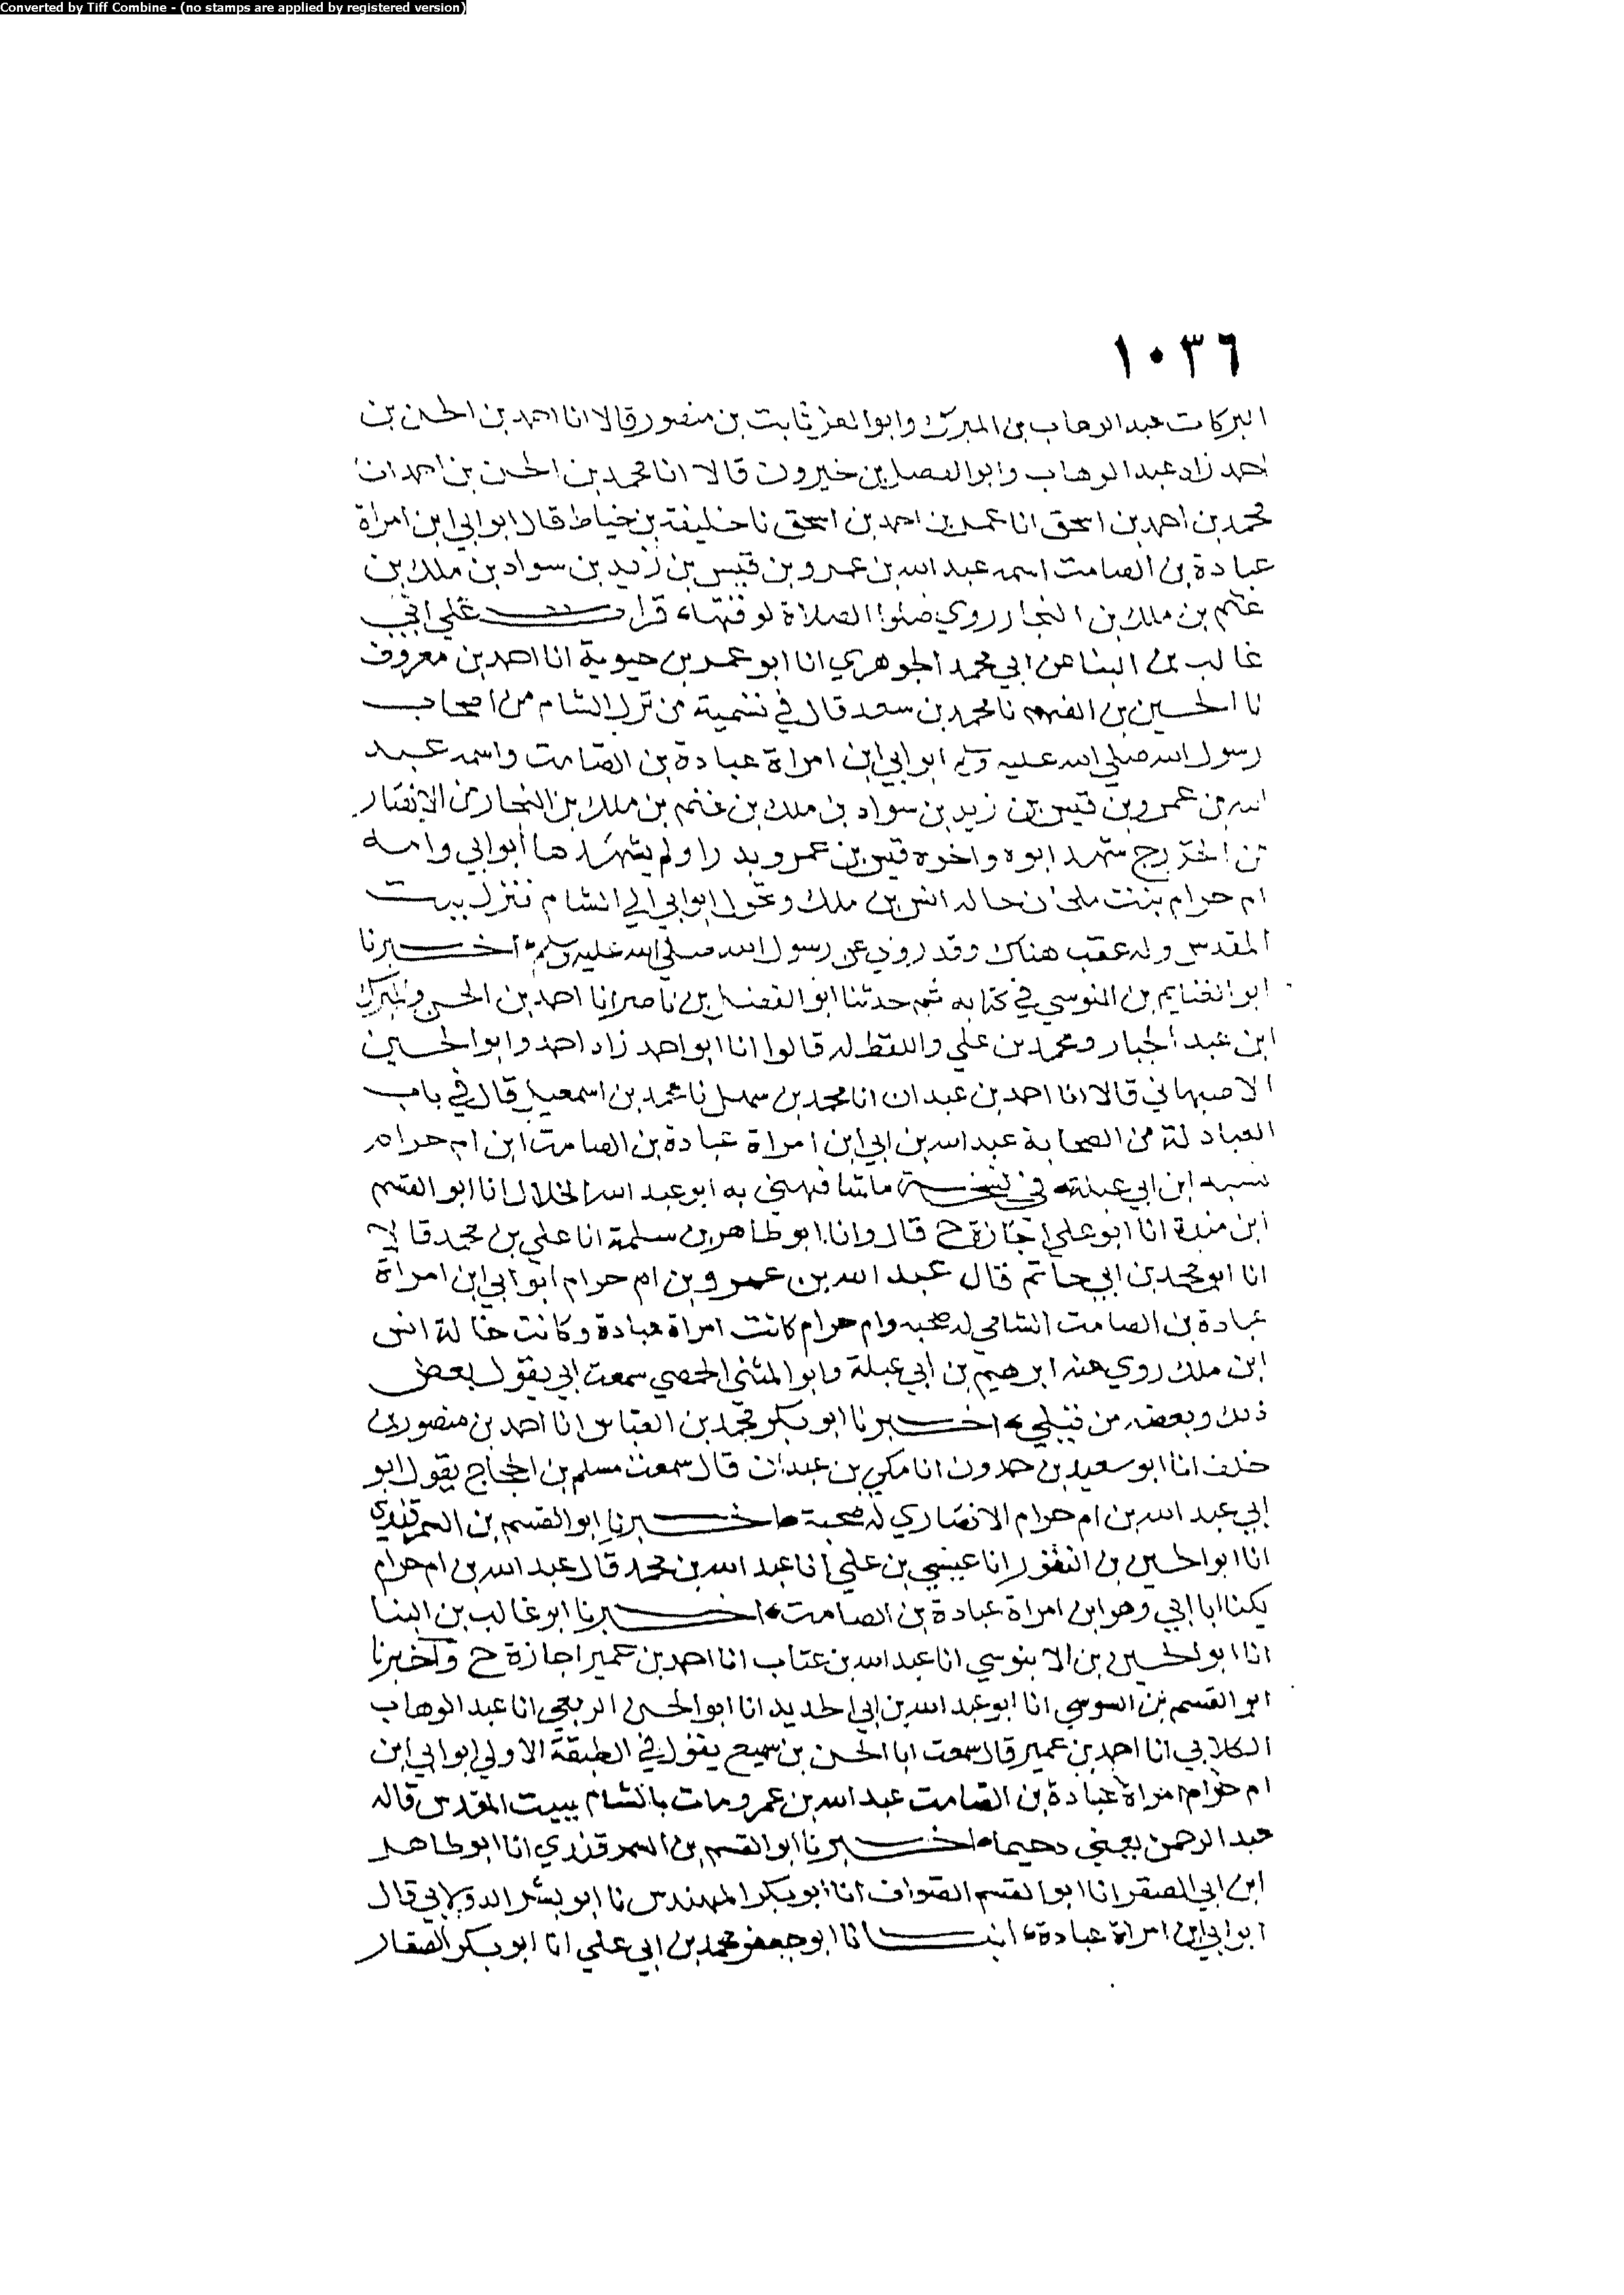 Converted by Tiff Combine - (no stamps are applied by registered version)
١٠٣٦
البركات عبد الوهاب بن المبرك وابو العز ثابت بن منصور قالا انا احمد بن الحسن بن
احمد زاد عبد الوهاب وابو الفضل بن خيرون قالا انا محمد بن الحسن بن احمد انا
محمد بن احمد بن اسحق انا عمر بن احمد بن اسحق نا خليفة بن خياط قال ابو ابي ابن امراة
عبادة بن الصامت اسمه عبد الله بن عمرو بن قيس بن زيد بن سواد بن ملك بن
غنم بن ملك بن النجار روي صلوا الصلاة لوقتها، قرات علي ابي
غالب بن البنا عن ابي محمد الجوهري انا ابو عمر بن حيوية انا احمد بن معروف
نا الحسين بن الفهم نا محمد بن سعد قال في تسمية من نزل الشام من اصحاب
رسول الله صلي الله عليه وسلم ابو ابي ابن امراة عبادة بن الصامت واسمه عبد
الله بن عمرو بن قيس بن زيد بن سواد بن ملك بن غنم بن ملك بن النجار من الانصار
من الخزرج شهد ابوه واخوه قيس بن عمرو بدرا ولم يشهدها ابو ابي وامه
ام حرام بنت ملحان خاله انس بن ملك وتحول ابو ابي الي الشام فنزل ببيت
المقدس وله عقب هناك وقد روي عن رسول الله صلي الله عليه وسلم، اخبرنا
ابو الغنايم بن النرسي في كتابه ثم حدثنا ابو الفضل بن ناصر انا احمد بن الحسن والمبرك
ابن عبد الجبار ومحمد بن علي واللفظ له قالوا انا ابو احمد زاد احمد وابو الحسين
الاصبهاني قالا انا احمد بن عبدان انا محمد بن سهل نا محمد بن اسمعيل قال في باب
العبادلة من الصحابة عبد الله بن ابي ابن امراة عبادة بن الصامت ابن ام حرام
نسبه ابن ابي عبلة، في نسخة ما شافهني به ابو عبد الله الخلال انا ابو القسم
ابن مندة انا ابو علي اجازة ح قال وانا ابو طاهر بن سلمة انا علي بن محمد قالا
انا ابو محمد بن ابي حاتم قال عبد الله بن عمرو بن ام حرام ابو ابي ابن امراة
عبادة بن الصامت الشامي له صحبه وام حرام كانت امراة عبادة وكانت خالة انس
ابن ملك روي عنه ابرهيم بن ابي عبلة وابو المثني الحمصي سمعت ابي يقول بعض
ذلك وبعضه من قبلي، اخبرنا ابو بكر محمد بن العباس انا احمد بن منصور بن
خلف انا ابو سعيد بن حمدون انا مكي بن عبدان قال سمعت مسلم بن الحجاج يقول ابو
ابي عبد الله بن ام حرام الانصاري له صحبة، اخبرنا ابو القسم بن السمرقندي
انا ابو الحسين بن النقور انا عيسي بن علي انا عبد الله بن محمد قال عبد الله بن ام حرام
يكنا ابا ابي وهو ابن امراة عبادة بن الصامت، اخبرنا ابو غالب بن البنا
انا ابو الحسين بن الابنوسي انا عبد الله بن عتاب انا احمد بن عمير اجازة ح واخبرنا
ابو القسم بن السوسي انا ابو عبد الله بن ابي الحديد انا ابو الحسن الربعي انا عبد الوهاب
الكلابي انا احمد بن عمير قال سمعت ابا الحسن بن سميع يقول في الطبقة الاولي ابو ابي ابن
ام حرام امراة عبادة بن الصامت عبد الله بن عمرو مات بالشام ببيت المقدس قاله
عبد الرحمن يعني دحيما، اخبرنا ابو القسم بن السمرقندي انا ابو طاهر
ابن ابي الصقر انا ابو القسم الصواف انا ابو بكر المهندس نا ابو بشر الدولابي قال
ابو ابي ابن امراة عبادة، انبانا ابو جعفر محمد بن ابي علي انا ابو بكر الصفار